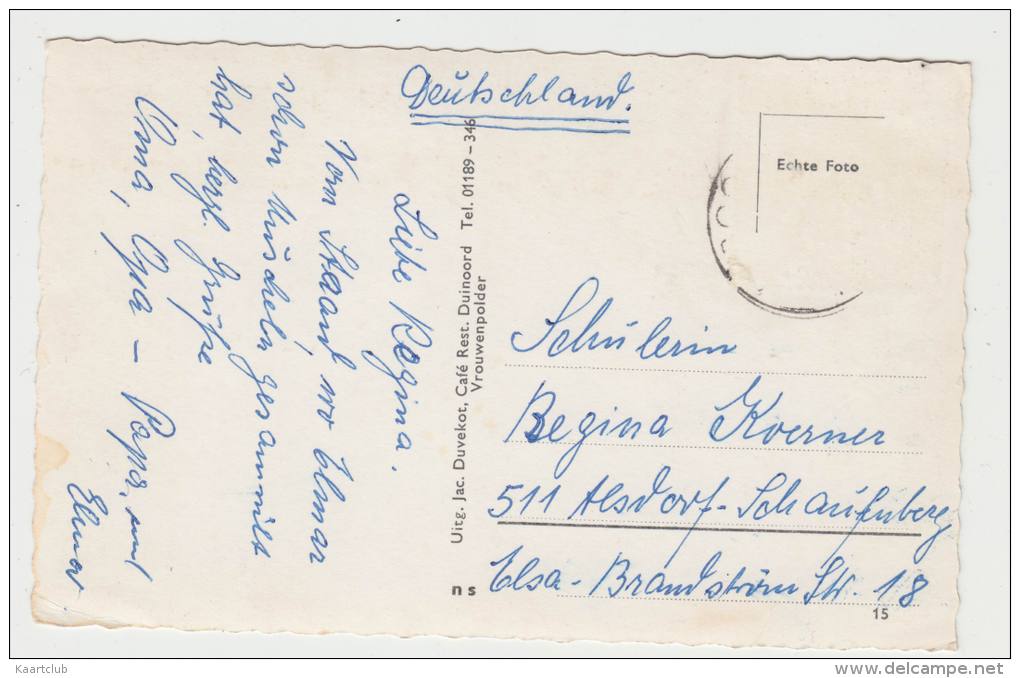 Deutschland.
Liebe Regina.
Vom Strand, wo Elmar
schon Muscheln gesammelt
hat, herzl. Grüße
Oma, Opa – Papa, und
Elmar.
Uitg. Jac. Duvekot, Café Rest. Duinoord Tel. 01189 – 346
Vrouwenpolder
Echte Foto
Schülerin
Regina Koerner
511 Alsdorf-Schaufenberg
Elsa-Brandström Str. 18
n s
15
Kaartclub
www.delcampe.net